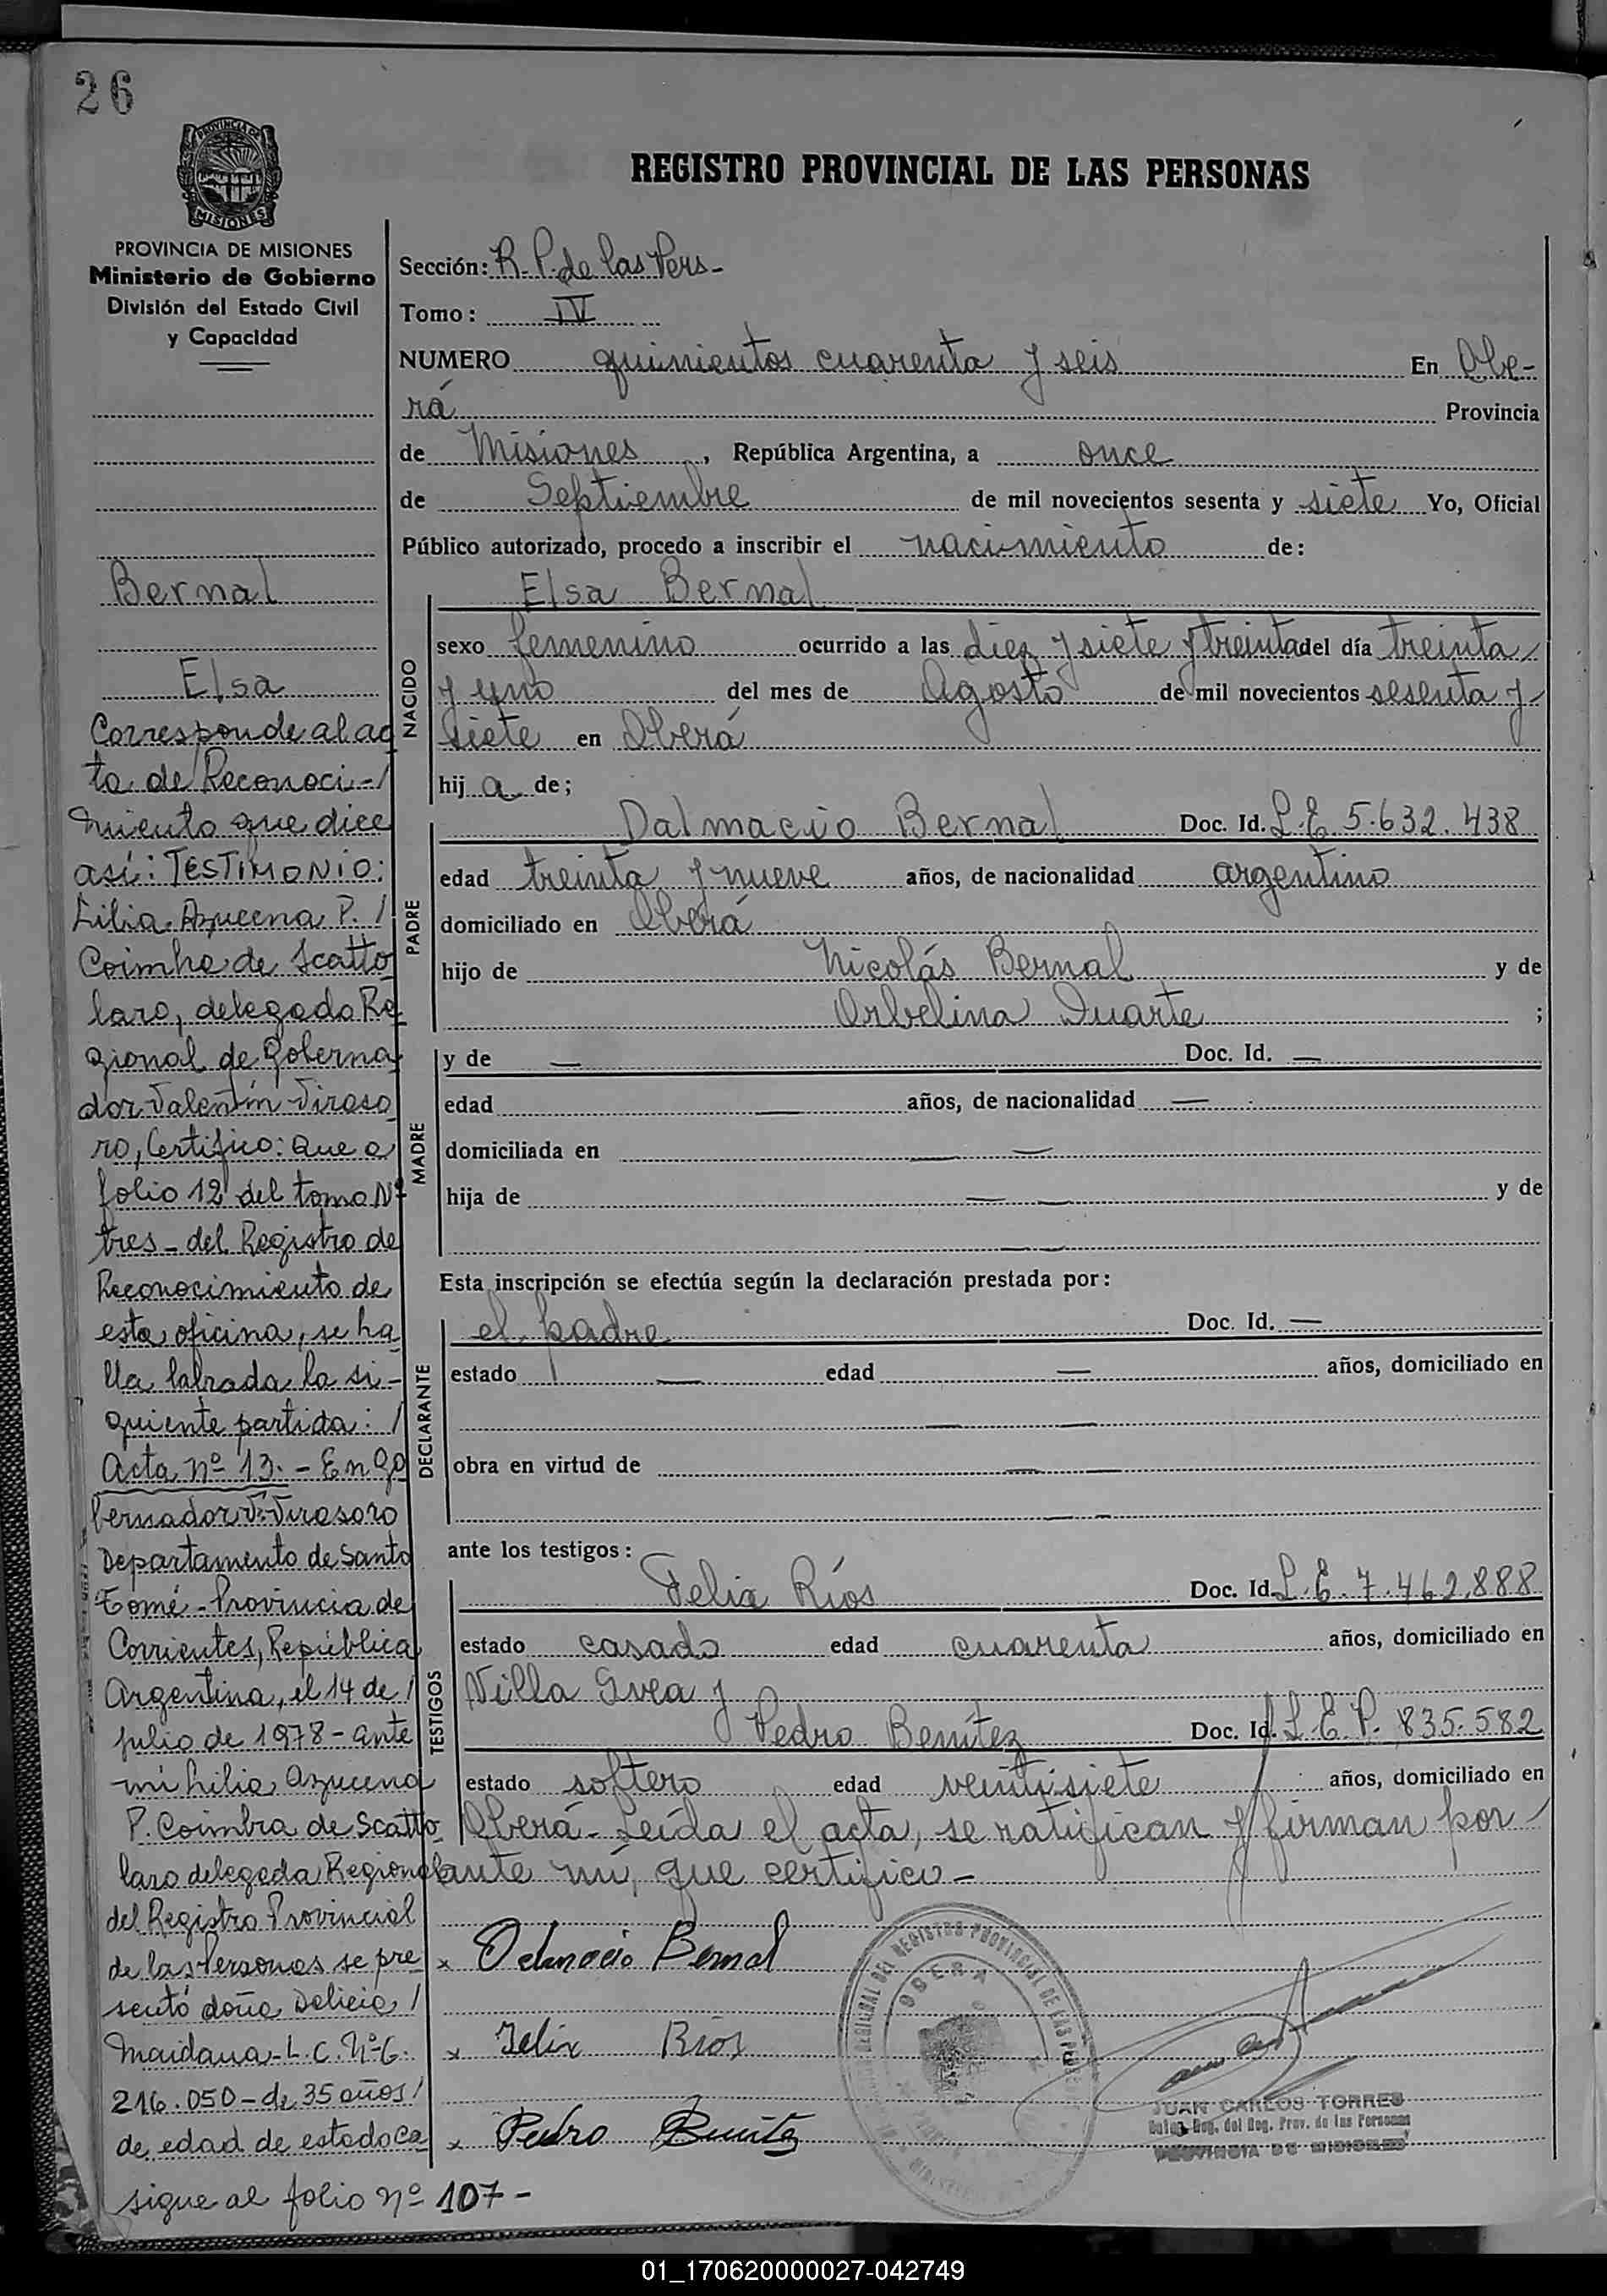 26
PROVINCIA DE
MISIONES
REGISTRO PROVINCIAL DE LAS PERSONAS
PROVINCIA DE MISIONES
Ministerio de Gobierno
División del Estado Civil
y Capacidad
Bernal
Elsa
Corresponde al ac
ta de Reconoci-/
miento que dice
así: TESTIMONIO:
Lilia Azucena P. /
Coimbra de Scatto
laro, delegada Re
gional de Goberna
dor Valentín Viraso
ro, Certifico: Que a
folio 12 del tomo Nº
tres - del Registro de
Reconocimiento de
esta oficina, se ha
lla labrada la si-
guiente partida: /
Acta nº 13. - En Go
bernador V. Virasoro
Departamento de Santo
Tomé - Provincia de
Corrientes, República
Argentina, el 14 de /
julio de 1978 - ante
mi Lilia Azucena
P. Coimbra de Scatto
laro delegada Regional
del Registro Provincial
de las Personas se pre
sentó doña Delicia /
Maidana - L.C. Nº 6.
216.050 - de 35 años /
de edad de estado ca
sigue al folio nº 107 -
Sección: R. P. de las Pers -
Tomo: IV
NUMERO quinientos cuarenta y seis En Obe-
rá Provincia
de Misiones, República Argentina, a once
de Septiembre de mil novecientos sesenta y siete Yo, Oficial
Público autorizado, procedo a inscribir el nacimiento de:
NACIDO
Elsa Bernal
sexo femenino ocurrido a las diez y siete y treinta del día treinta
y uno del mes de Agosto de mil novecientos sesenta y
siete en Oberá
hija de;
PADRE
Dalmacio Bernal Doc. Id. L.E. 5.632.438
edad treinta y nueve años, de nacionalidad argentino
domiciliado en Oberá
hijo de Nicolás Bernal y de
Orbelina Duarte ;
MADRE
y de — Doc. Id. —
edad — años, de nacionalidad —
domiciliada en — —
hija de — — y de
— —
Esta inscripción se efectúa según la declaración prestada por:
DECLARANTE
el padre Doc. Id. —
estado — edad — años, domiciliado en
— —
obra en virtud de — —
— —
ante los testigos:
TESTIGOS
Felix Ríos Doc. Id. L.E. 7.462.888
estado casado edad cuarenta años, domiciliado en
Villa Svea y
Pedro Benítez Doc. Id. L.E.P. 835.582
estado soltero edad veintisiete años, domiciliado en
Oberá - Leída el acta, se ratifican y firman por
ante mí, que certifico -
x Dalmacio Bernal
x Felix Rios
x Pedro Benitez
REGISTRO PROVINCIAL DE LAS
OBERA
JUAN CARLOS TORRES
Reg. del Reg. Prov. de las Personas
PROVINCIA DE MISIONES
01_170620000027-042749